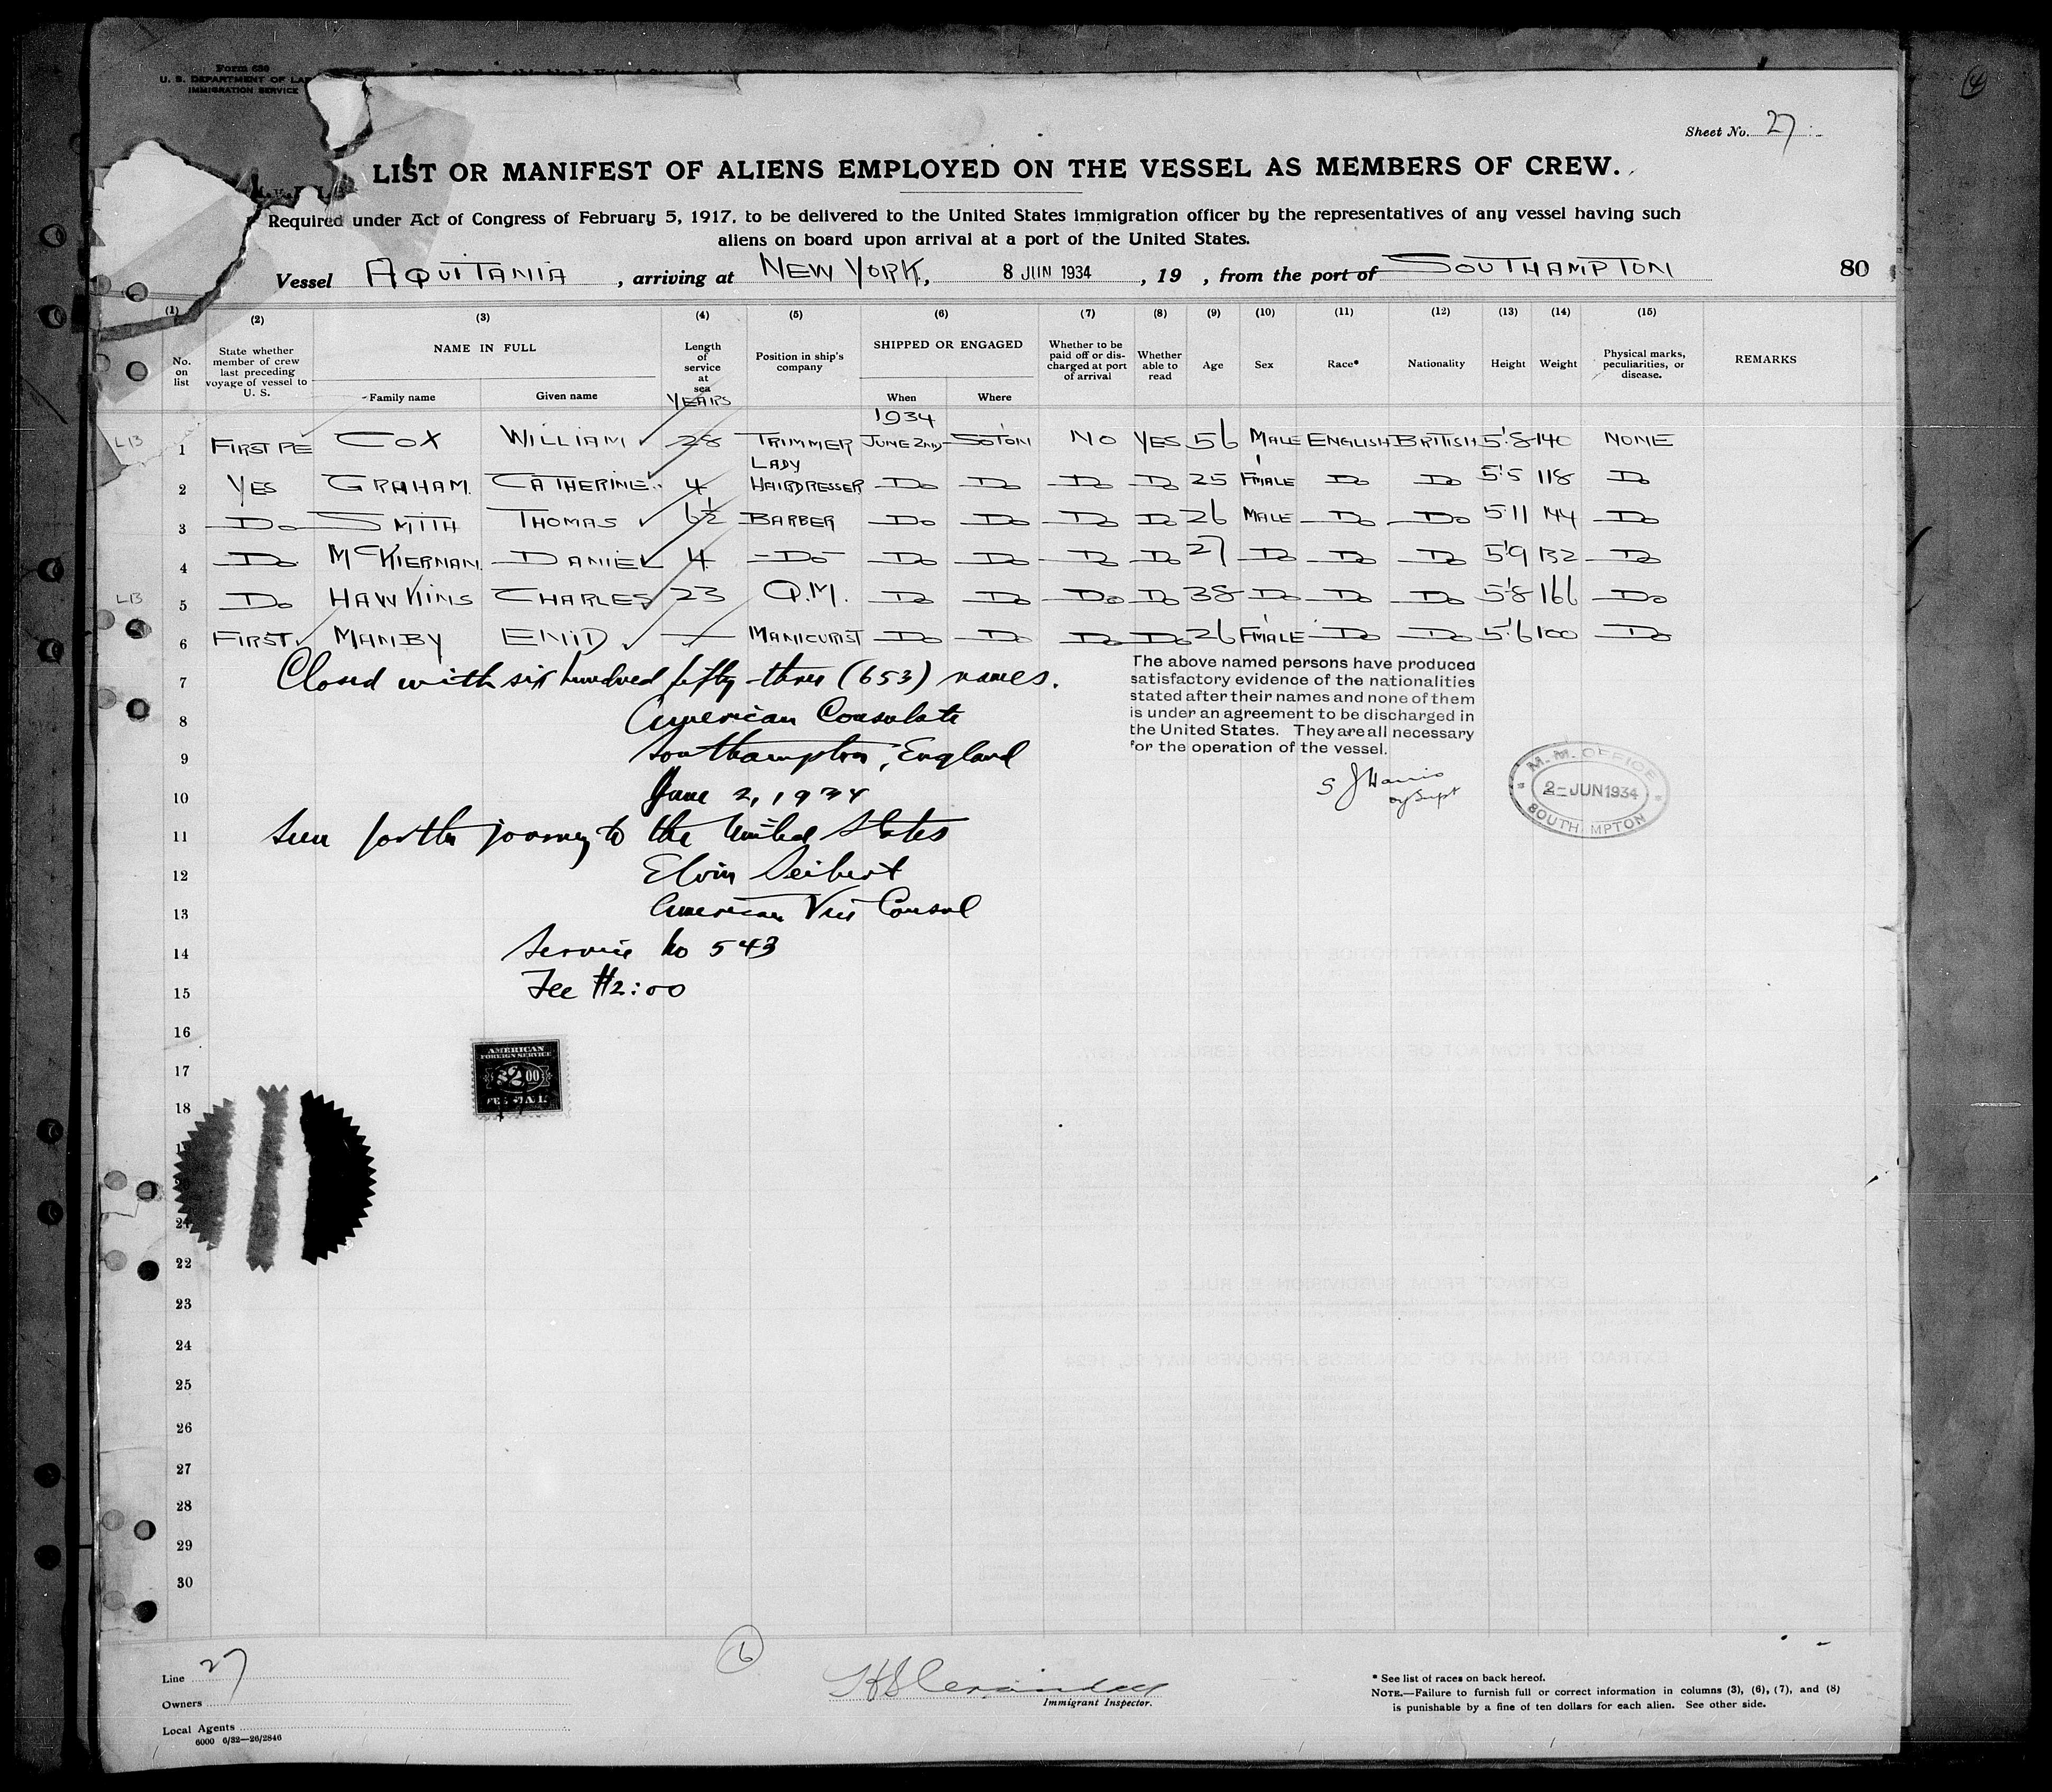 Form 680
U. S. DEPARTMENT OF LAB
IMMIGRATION SERVICE
4
Sheet No. 27
LIST OR MANIFEST OF ALIENS EMPLOYED ON THE VESSEL AS MEMBERS OF CREW.
Required under Act of Congress of February 5, 1917, to be delivered to the United States immigration officer by the representatives of any vessel having such
aliens on board upon arrival at a port of the United States.
Vessel AQUITANIA , arriving at NEW YORK, 8 JUN 1934 , 19 , from the port of SOUTHAMPTON 80
(1) (2) (3) (4) (5) (6) (7) (8) (9) (10) (11) (12) (13) (14) (15)
No. on list State whether member of crew last preceding voyage of vessel to U. S. NAME IN FULL Family name Given name Length of service at sea YEARS Position in ship's company SHIPPED OR ENGAGED When Where Whether to be paid off or discharged at port of arrival Whether able to read Age Sex Race* Nationality Height Weight Physical marks, peculiarities, or disease. REMARKS
1934
L13 1 FIRST PE COX WILLIAM 28 TRIMMER JUNE 2ND SOTON NO YES 56 MALE ENGLISH BRITISH 5'8 140 NONE
2 YES GRAHAM. CATHERINE. 4 LADY HAIRDRESSER DO DO DO DO 25 FMALE DO DO 5'5 118 DO
3 DO SMITH THOMAS 6½ BARBER DO DO DO DO 26 MALE DO DO 5'11 144 DO
4 DO McKIERNAN. DANIEL 4 -DO- DO DO DO DO 27 DO DO DO 5'9 132 DO
L13 5 DO HAWKINS CHARLES 23 Q.M. DO DO DO DO 38 DO DO DO 5'8 166 DO
6 FIRST. MANBY ENID — MANICURIST DO DO DO DO 26 FMALE DO DO 5'6 100 DO
7 Closed with six hundred fifty-three (653) names.
8 American Consulate
9 Southampton, England
10 June 2, 1934
11 Seen for the journey to the United States
12 Elvin Seibert
13 American Vice Consul
14 Service No 543
15 Fee $2:00
The above named persons have produced
satisfactory evidence of the nationalities
stated after their names and none of them
is under an agreement to be discharged in
the United States. They are all necessary
for the operation of the vessel.
S J Harris
M. M. OFFICE
2-JUN 1934
SOUTH MPTON
16
AMERICAN
FOREIGN SERVICE
17
$2.00
18
22
23
24
25
26
27
28
29
30
6
Line 27
Owners
Local Agents
6000 6/32—26/2846
Immigrant Inspector.
* See list of races on back hereof.
NOTE.—Failure to furnish full or correct information in columns (3), (6), (7), and (8)
is punishable by a fine of ten dollars for each alien. See other side.